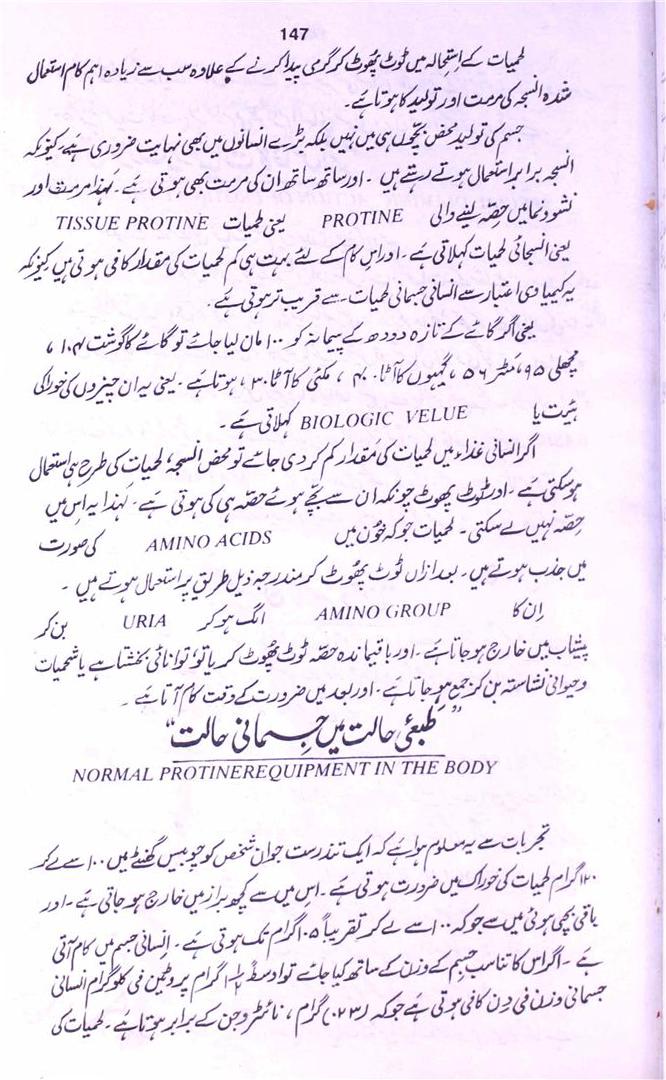 147
لحمیات کے استحالہ میں ٹوٹ پھوٹ کر گرمی پیدا کرنے کے علاوہ سب سے زیادہ اہم کام استعمال
شدہ انسجہ کی مرمت اور تولید کا ہوتا ہے۔
جسم کی تولید محض بچّوں ہی میں نہیں بلکہ بڑے انسانوں میں بھی نہایت ضروری ہے۔ کیونکہ
انسجہ برابر استعمال ہوتے رہتے ہیں ۔ اور ساتھ ساتھ ان کی مرمت بھی ہوتی ہے۔ لہٰذا مرمت اور
نشوونما میں حِصّہ لینے والی PROTINE یعنی لحمیات TISSUE PROTINE
یعنی انسجائی لحمیات کہلاتی ہے ۔ اور اس کام کے لئے بہت ہی کم لحمیات کی مقدار کافی ہوتی ہیں کیونکہ
یہ کیمیاوی اعتبار سے انسانی جسمانی لحمیات سے قریب تر ہوتی ہے ۔
یعنی اگر گائے کے تازہ دودھ کے پیمانہ کو ۱۰۰ مان لیا جائے تو گائے کا گوشت ۱۰۴ ،
مچھلی ۹۵ ، مٹر ۵۶ ، گیہوں کا آٹا ۴۰ ، مکئی کا آٹا ۳۰ ، ہوتا ہے ۔ یعنی یہ ان چیزوں کی خوراکی
ہیٔت یا BIOLOGIC VELUE کہلاتی ہے ۔
اگر انسانی غذاء میں لحمیات کی مقدار کم کر دی جائے تو محض انسجہ، لحمیات کی طرح ہی استعمال
ہو سکتی ہے ۔ اور ٹوٹ پھوٹ چونکہ ان سے بچے ہوئے حصّہ ہی کی ہوتی ہے ۔ لہٰذا یہ اس میں
حِصّہ نہیں لے سکتی ۔ لحمیات جو کہ خُون میں AMINO ACIDS کی صورت
میں جذب ہوتے ہیں ۔ بعد ازاں ٹوٹ پھوٹ کر مندرجہ ذیل طریق پر استعمال ہوتے ہیں ۔
اِن کا AMINO GROUP الگ ہو کر URIA بن کر
پیشاب میں خارج ہو جاتا ہے ۔ اور باقیماندہ حصّہ ٹوٹ پھوٹ کر یا تو توانائی بخشتا ہے یا شحمیات
و حیوانی نشاستہ بن کر جمع ہو جاتا ہے ۔ اور بعد میں ضرورت کے وقت کام آتا ہے ۔
”طبعٔی حالت میں جسمانی حالت“
NORMAL PROTINEREQUIPMENT IN THE BODY
تجربات سے یہ معلوم ہوا ہے کہ ایک تندرست جوان شخص کو چوبیس گھنٹے میں ۱۰۰ سے لے کر
۱۲۰ گرام لحمیات کی خوراک میں ضرورت ہوتی ہے ۔ اس میں سے کچھ براز میں خارج ہو جاتی ہے ۔ اور
باقی بچی ہوئی میں سے جو کہ ۱۰۰ سے لے کر تقریباً ۱۰۵ گرام تک ہوتی ہے ۔ انسانی جسم میں کام آتی
ہے ۔ اگر اس کا تناسب جسم کے وزن کے ساتھ کیا جائے تو اوسطاً گرام پروٹین فی کلوگرام انسانی
جسمانی وزن فی دِن کافی ہوتی ہے جو کہ (۰۲۳) گرام ، نائٹروجن کے برابر ہوتا ہے ۔ لحمیات کی